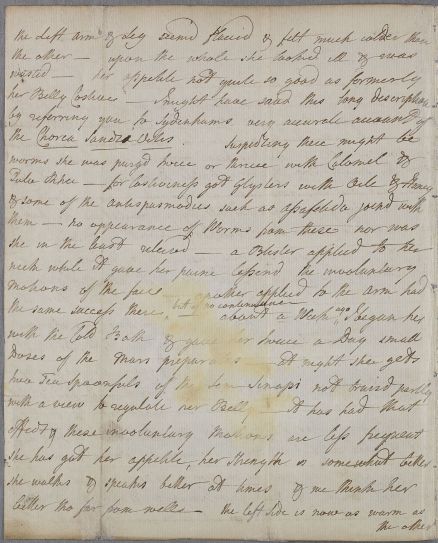 the Left arm & Leg seem'd flaccid & felt much colder than
the other — upon the whole she looked ill & was
wasted — her appetite not quite so good as formerly
her Belly Costive — I might have saved this long description
by referring you to Sydenhams very accurate account of
the Chorea Sancti Viti. Suspecting there might be
worms she was purg'd twice or thrice with Calomel &
for Costiveness got Glysters with Bile & Honey
& some of the antispasmodics such as assafetida joind with
them — no appearance of Worms from these nor was
she in the least relieved — a Blister applied to the
neck while it gave her pain lessend the involuntary
motions of the face — another applied to the arm had
the same success there, but of no continuance — about a Week ago I began her
with the Cold Bath & gave her twice a Day small
Doses of the Mars preparatus — at night she gets
two Teaspoonfuls of the Sem Sinapi not bruisd partly
with a view to regulate her Belly — It has had that
effect & these involuntary Motions are less frequent
she has got her appetite, her strength is somewhat better
she walks & speaks better at times & we think her
better tho far from well — the left side is now as warm as
the other